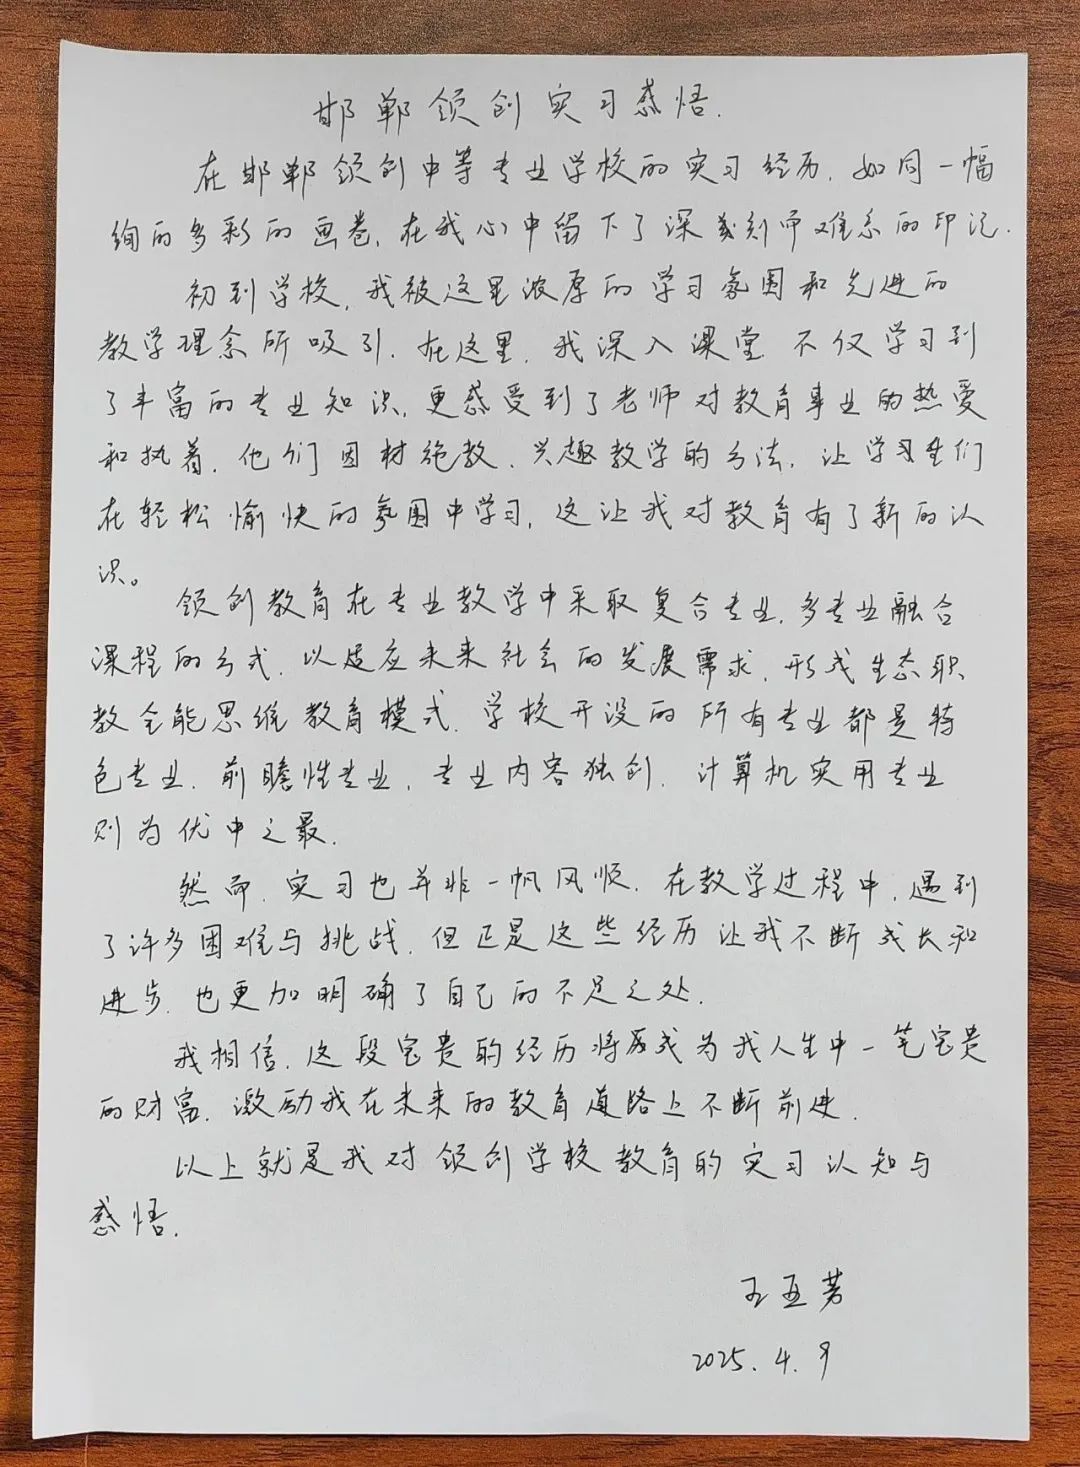 邯郸领创实习感悟.
在邯郸领创中等专业学校的实习经历,如同一幅
绚的多彩的画卷,在我心中留下了深刻而难忘的印记.
初到学校,我被这里浓厚的学习氛围和先进的
教学理念所吸引.在这里,我深入课堂不仅学习到
了丰富的专业知识,更感受到了老师对教育事业的热爱
和执着.他们因材施教、兴趣教学的方法,让学习生们
在轻松愉快的氛围中学习,这让我对教育有了新的认
识。
领创教育在专业教学中采取复合专业,多专业融合
课程的方式,以适应未来社会的发展需求,形成生态职
教全能思维教育模式.学校开设的所有专业都是特
色专业,前瞻性专业,专业内容独创.计算机实用专业
则为优中之最.
然而,实习也并非一帆风顺.在教学过程中,遇到
了许多困难与挑战.但正是这些经历让我不断成长和
进步,也更加明确了自己的不足之处.
我相信,这段宝贵的经历将成为我人生中一笔宝贵
的财富,激励我在未来的教育道路上不断前进.
以上就是我对领创学校教育的实习认知与
感悟.
王亚芳
2025.4.9